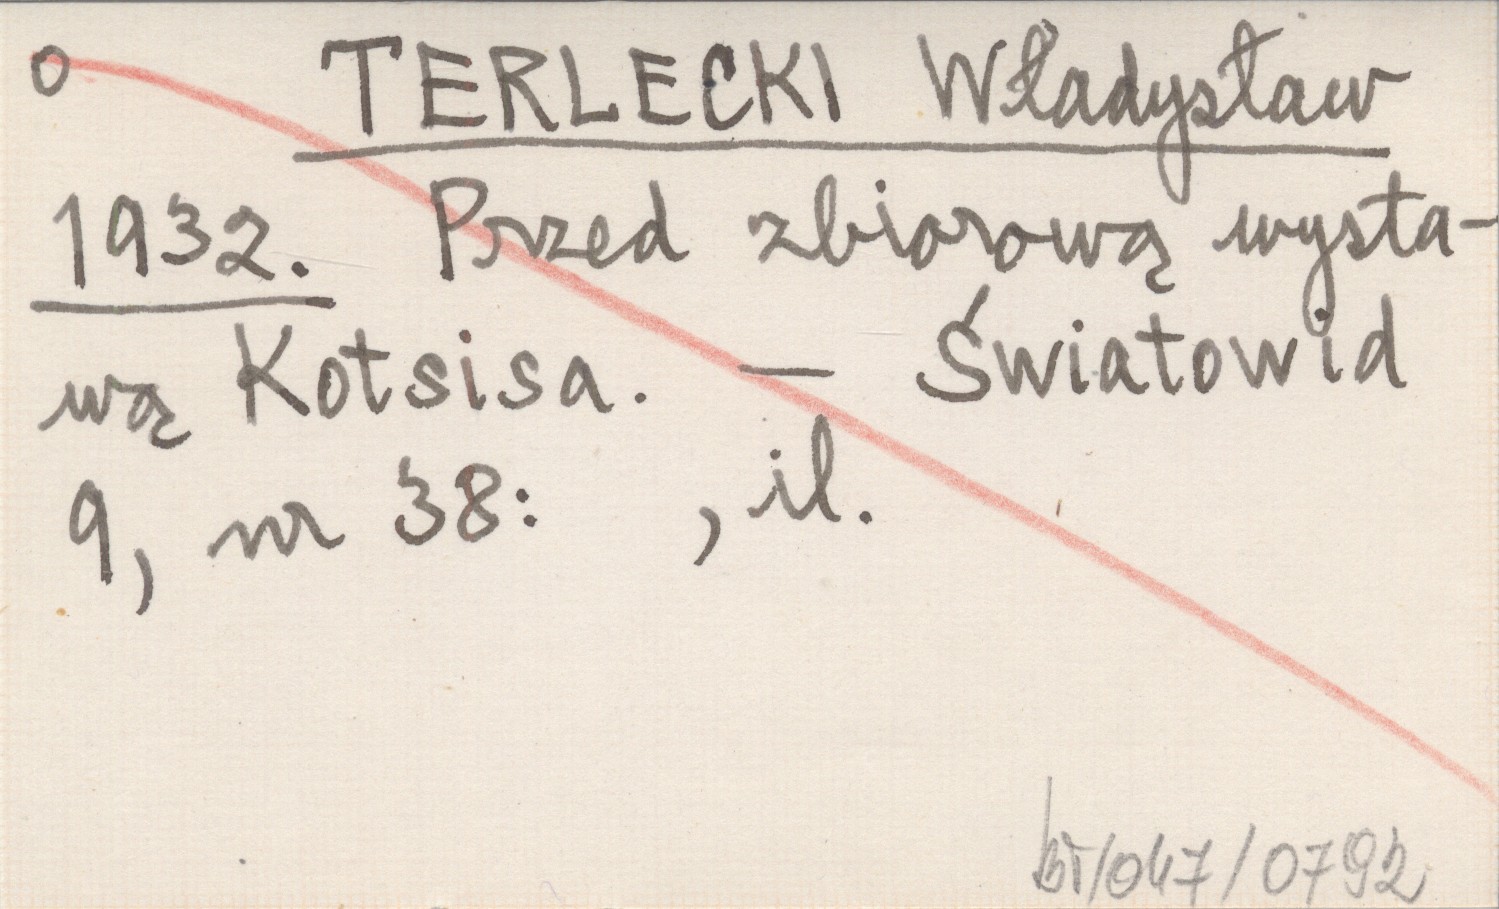 o TERLECKI Władysław
1932. Przed zbiorową wysta-
wą Kotsisa. — Światowid
9, nr 38: , il.
bř/047/0792